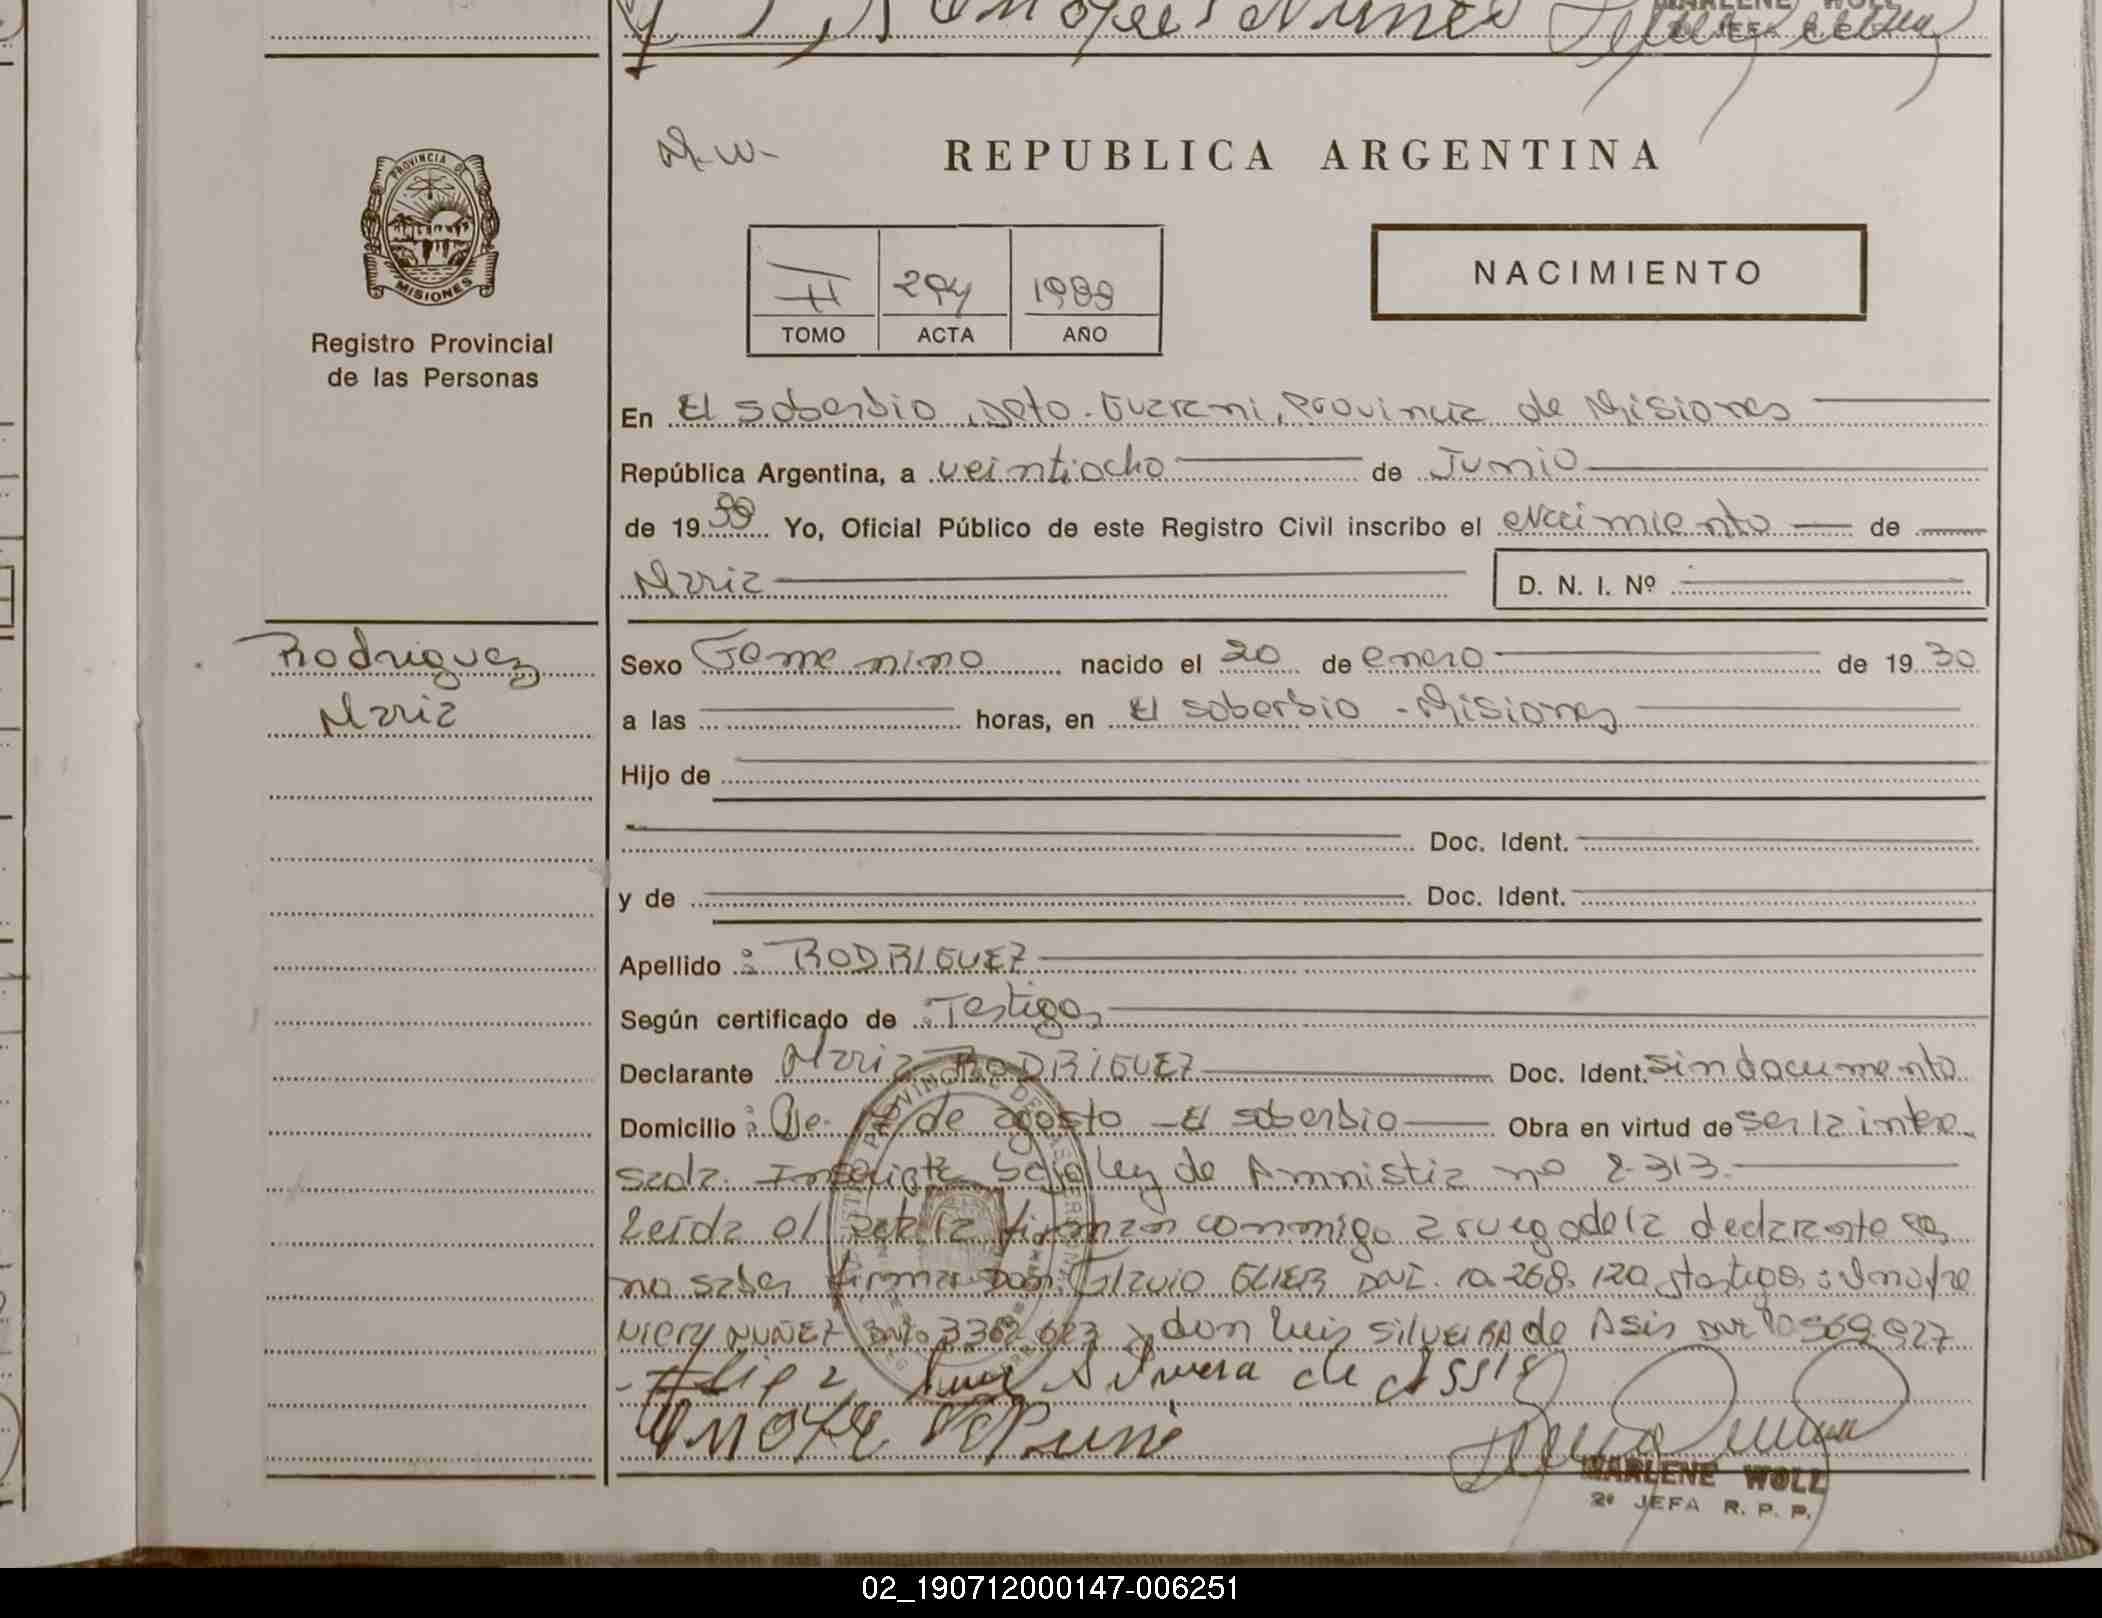 Onofre Nunes
MARLENE WOLL
2º JEFA R. P. P.
M.W.
REPUBLICA ARGENTINA
PROVINCIA DE
MISIONES
Registro Provincial
de las Personas
II 294 1989
TOMO ACTA AÑO
NACIMIENTO
En El Soberbio, Dpto. Guarani, Provincia de Misiones
República Argentina, a veintiocho de Junio
de 19 89 Yo, Oficial Público de este Registro Civil inscribo el Nacimiento de
Maria D. N. I. Nº
Rodriguez
Maria
Sexo Femenino nacido el 20 de enero de 19 30
a las horas, en El Soberbio - Misiones
Hijo de
Doc. Ident.
y de Doc. Ident.
Apellido : RODRIGUEZ
Según certificado de : Testigos
Declarante Maria RODRIGUEZ Doc. Ident. sin documento
Domicilio : de agosto - El Soberbio Obra en virtud de ser la intere
sada. Inscripta bajo ley de Amnistia nº 2.313.
Leida el acta la firman conmigo a ruego de la declarante
no saber firmar Don: DNI. 10.268.120 testigos : Onofre
NUÑEZ DNI 3362.623 y don Luis SILVEIRA de Asis DNI 10569.927
Luis Silvera de Assis
Onofre
MARLENE WOLL
2º JEFA R. P. P.
02_190712000147-006251